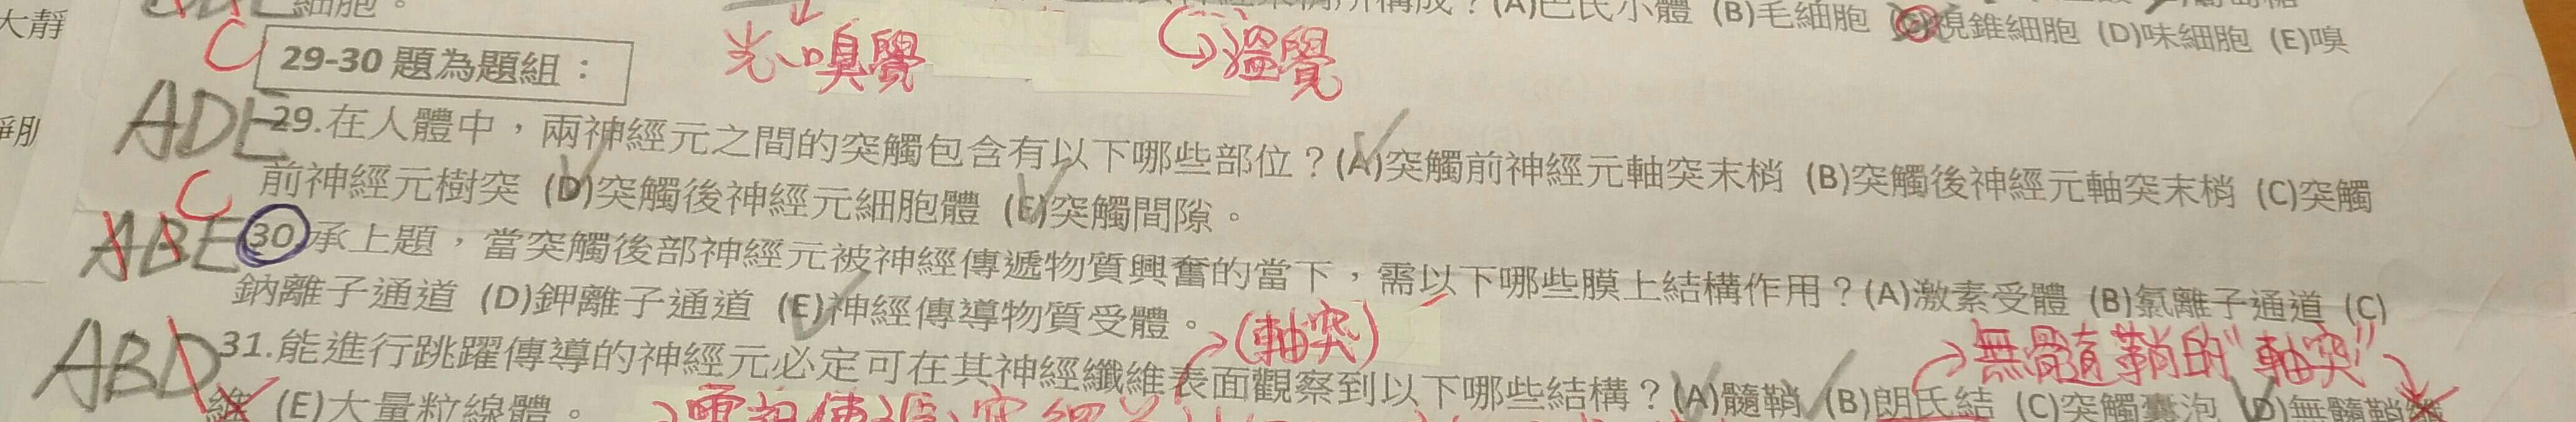 大靜
細胞。
構成？(A)巴氏小體 (B)毛細胞 (C)視錐細胞 (D)味細胞 (E)嗅
C
光、嗅覺
溫覺
29-30 題為題組：
ADE
29.在人體中，兩神經元之間的突觸包含有以下哪些部位？(A)突觸前神經元軸突末梢 (B)突觸後神經元軸突末梢 (C)突觸
前神經元樹突 (D)突觸後神經元細胞體 (E)突觸間隙。
C
ABE
30.承上題，當突觸後部神經元被神經傳遞物質興奮的當下，需以下哪些膜上結構作用？(A)激素受體 (B)氯離子通道 (C)
鈉離子通道 (D)鉀離子通道 (E)神經傳導物質受體。
(軸突)
無髓鞘的"軸突"
ABD
31.能進行跳躍傳導的神經元必定可在其神經纖維表面觀察到以下哪些結構？(A)髓鞘 (B)朗氏結 (C)突觸囊泡 (D)無髓鞘纖
維 (E)大量粒線體。